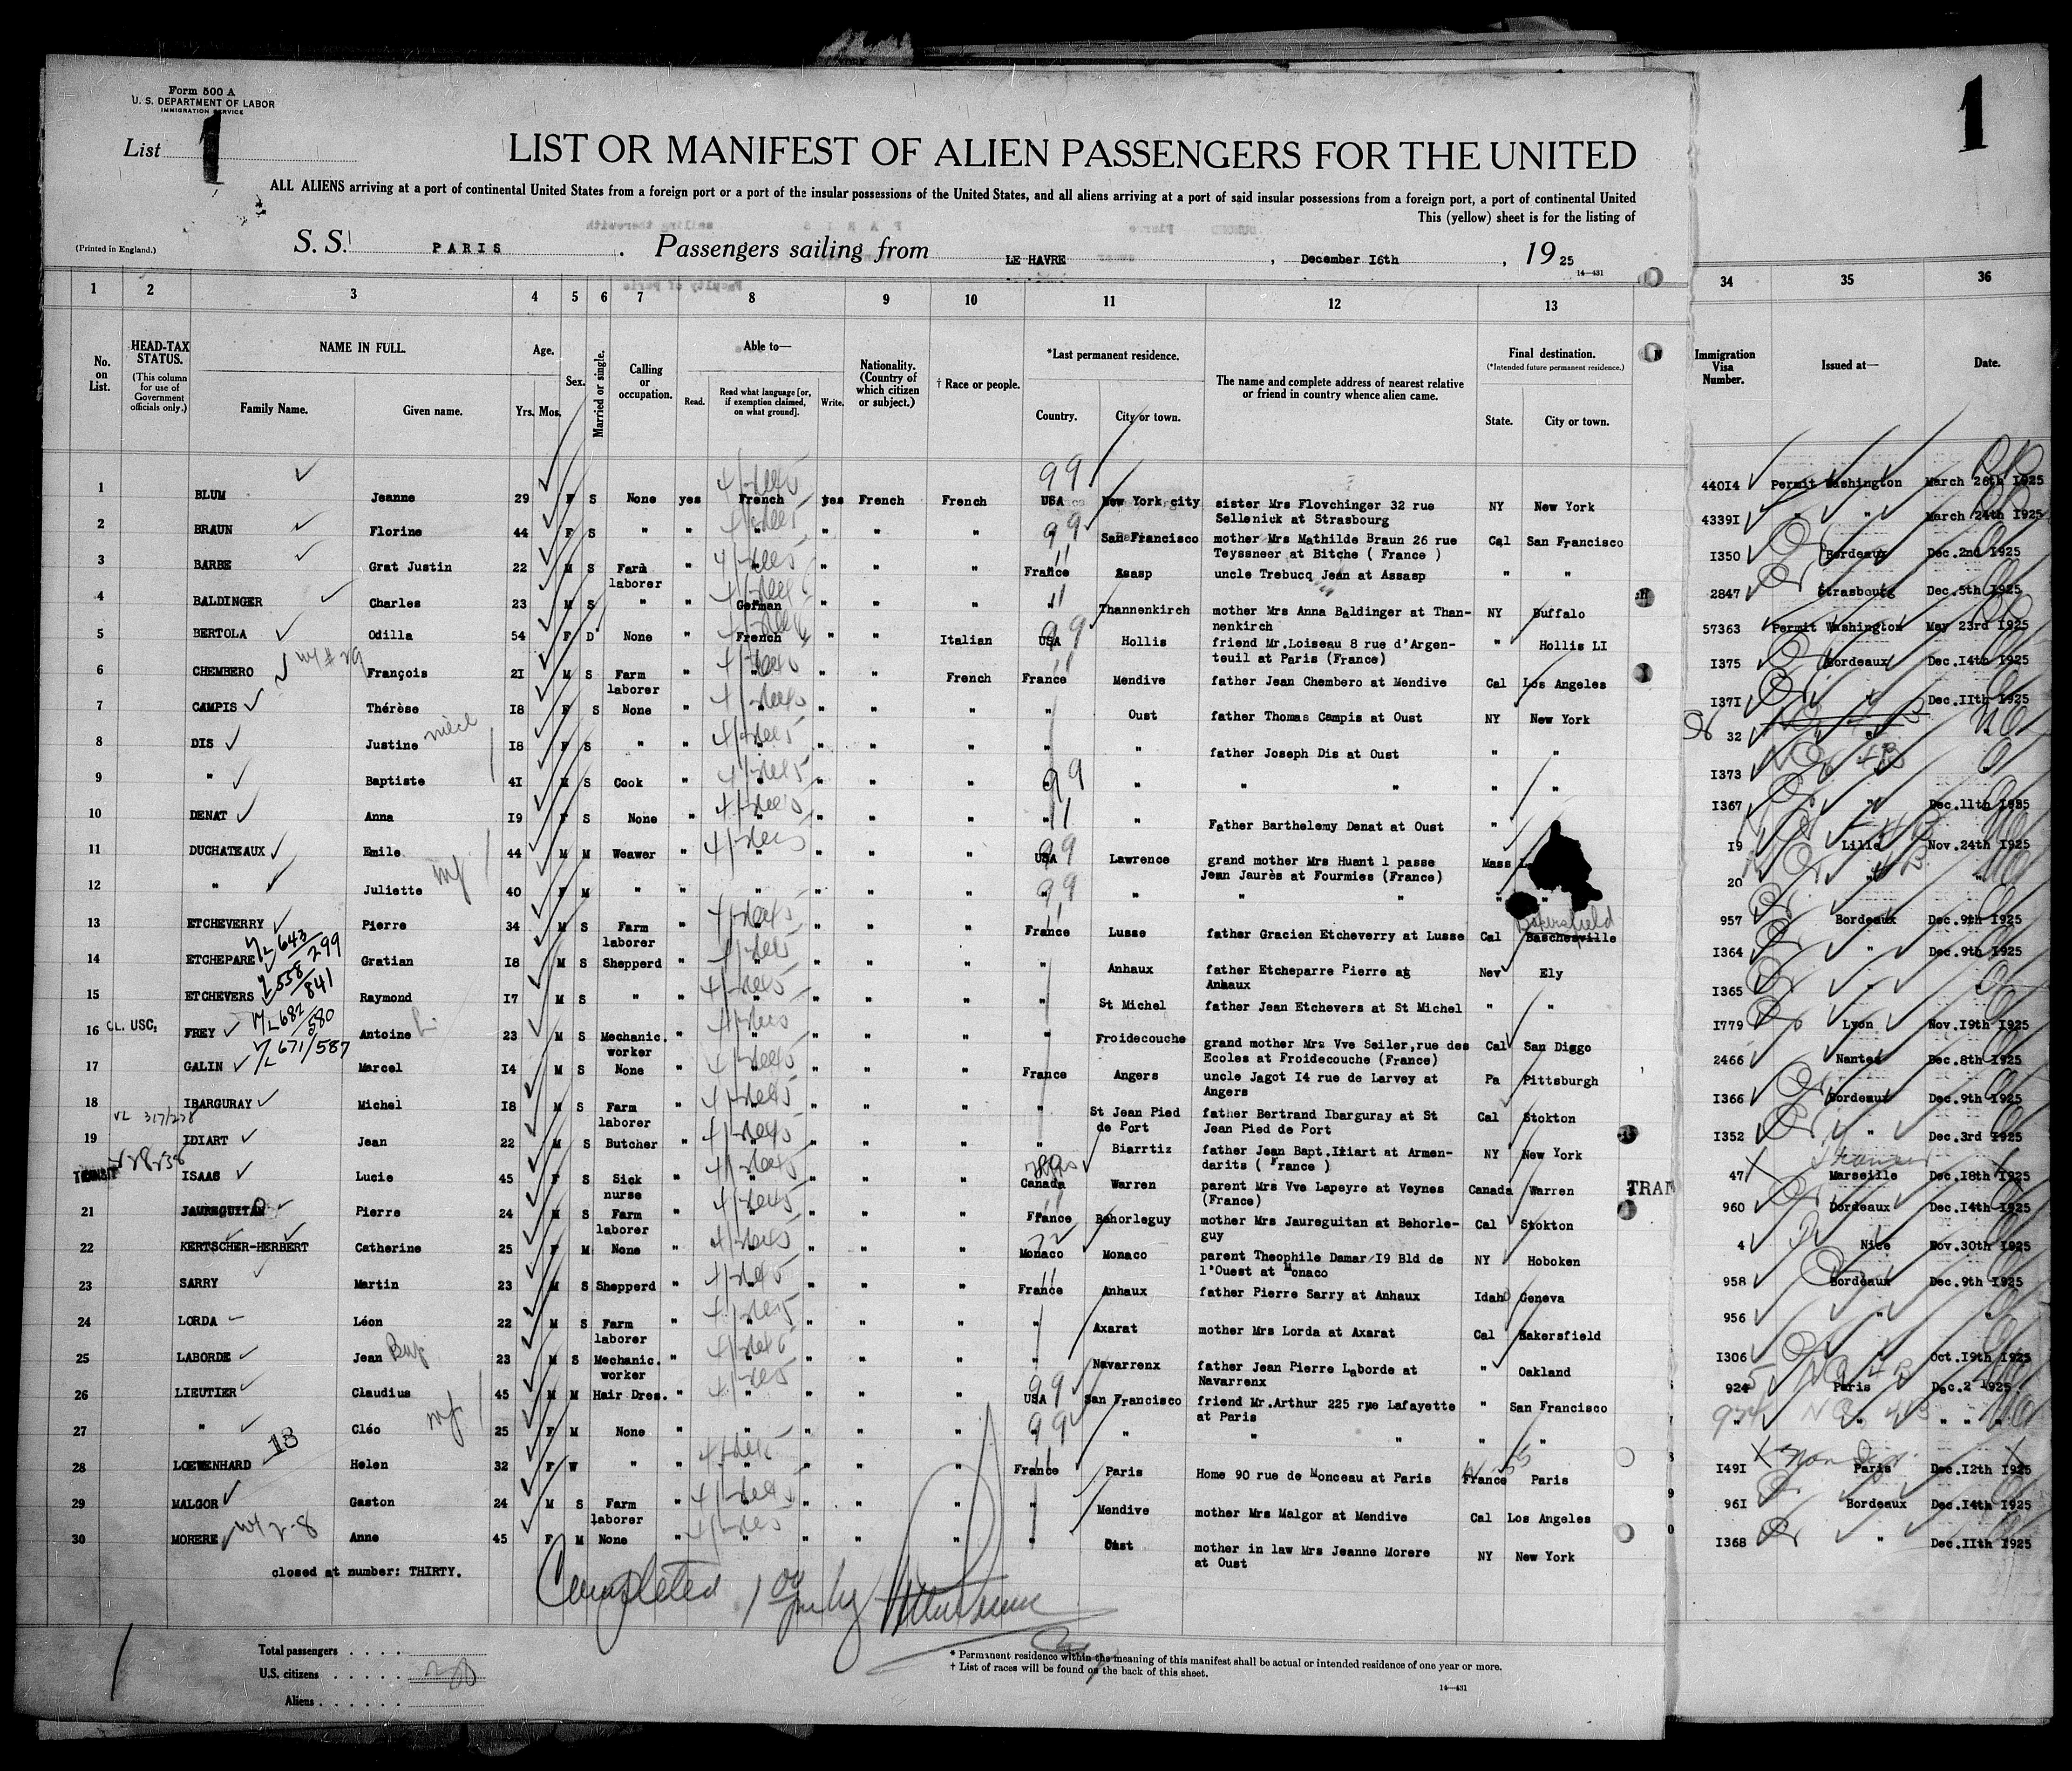 Form 500 A
U. S. DEPARTMENT OF LABOR
IMMIGRATION SERVICE
List 1
1
LIST OR MANIFEST OF ALIEN PASSENGERS FOR THE UNITED
ALL ALIENS arriving at a port of continental United States from a foreign port or a port of the insular possessions of the United States, and all aliens arriving at a port of said insular possessions from a foreign port, a port of continental United
This (yellow) sheet is for the listing of
(Printed in England.)
S. S. PARIS . Passengers sailing from LE HAVRE , December I6th , 19 25
14—431
1 2 3 4 5 6 7 8 9 10 11 12 13 34 35 36
No. on List.
HEAD-TAX STATUS.
(This column for use of Government officials only.)
NAME IN FULL.
Family Name. Given name.
Age.
Yrs. Mos.
Sex.
Married or single.
Calling or occupation.
Able to—
Read. Read what language [or, if exemption claimed, on what ground]. Write.
Nationality. (Country of which citizen or subject.)
† Race or people.
*Last permanent residence.
Country. City or town.
The name and complete address of nearest relative or friend in country whence alien came.
Final destination.
(*Intended future permanent residence.)
State. City or town.
Immigration Visa Number.
Issued at—
Date.
1 BLUM Jeanne 29 F S None yes French yes French French USA New York city sister Mrs Flovchinger 32 rue NY New York 440I4 Permit Washington March 26th I925
Sellenick at Strasbourg
2 BRAUN Florine 44 F S " " " " " " " San Francisco mother Mrs Mathilde Braun 26 rue Cal San Francisco 4339I " " March 24th I925
Teyssneer at Bitche ( France )
3 BARBE Grat Justin 22 M S Farm " " " " " France Asasp uncle Trebucq Jean at Assasp " " I350 Bordeaux Dec.2nd I925
laborer
4 BALDINGER Charles 23 M S " " German " " " " Thannenkirch mother Mrs Anna Baldinger at Than- NY Buffalo 2847 Strasbourg Dec.5th I925
nenkirch
5 BERTOLA Odilla 54 F D None " French " " Italian USA Hollis friend Mr.Loiseau 8 rue d'Argen- " Hollis LI 57363 Permit Washington May 23rd I925
teuil at Paris (France)
6 CHEMBERO François 2I M S Farm " " " " French France Mendive father Jean Chembero at Mendive Cal Los Angeles I375 Bordeaux Dec.I4th I925
laborer
7 CAMPIS Thérèse I8 F S None " " " " " " Oust father Thomas Campis at Oust NY New York I37I " Dec.IIth I925
8 DIS Justine niece I8 F S " " " " " " " " father Joseph Dis at Oust " " 32 " "
9 " Baptiste 4I M S Cook " " " " " " " " " " " I373
10 DENAT Anna I9 F S None " " " " " " " Father Barthelemy Denat at Oust " I367 " Dec.11th I925
11 DUCHATEAUX Emile 44 M M Weawer " " " " " USA Lawrence grand mother Mrs Huant 1 passe Mass L I9 Lille Nov.24th I925
Jean Jaurès at Fourmies (France)
12 " Juliette 40 F M " " " " " " " " " " " " 20 "
13 ETCHEVERRY Pierre 34 M S Farm " " " " " France Lusse father Gracien Etcheverry at Lusse Cal Baschesville Bakersfield 957 Bordeaux Dec.9th I925
laborer
14 ETCHEPARE Gratian I8 M S Shepperd " " " " " " Anhaux father Etcheparre Pierre at Nev Ely I364 " Dec.9th I925
Anhaux
15 ETCHEVERS Raymond I7 M S " " " " " " " St Michel father Jean Etchevers at St Michel " " I365 " "
16 FREY Antoine 23 M S Mechanic. " " " " " " Froidecouche grand mother Mrs Vve Seiler,rue des Cal San Diggo I779 Lyon Nov.I9th I925
worker Ecoles at Froidecouche (France)
17 GALIN Marcel I4 M S None " " " " " France Angers uncle Jagot I4 rue de Larvey at Pa Pittsburgh 2466 Nantes Dec.8th I925
Angers
18 IBARGURAY Michel I8 M S Farm " " " " " " St Jean Pied father Bertrand Ibarguray at St Cal Stokton I366 Bordeaux Dec.9th I925
laborer de Port Jean Pied de Port
19 IDIART Jean 22 M S Butcher " " " " " " Biarrtiz father Jean Bapt.Itiart at Armen- NY New York I352 " Dec.3rd I925
darits ( France )
ISAAC Lucie 45 F S Sick " " " " " Canada Warren parent Mrs Vve Lapeyre at Veynes Canada Warren TRAN 47 Marseille Dec.I8th I925
nurse (France)
21 JAUREGUITAN Pierre 24 M S Farm " " " " " France Behorleguy mother Mrs Jaureguitan at Behorle- Cal Stokton 960 Bordeaux Dec.I4th I925
laborer guy
22 KERTSCHER-HERBERT Catherine 25 F M None " " " " " Monaco Monaco parent Theophile Damar I9 Bld de NY Hoboken 4 Nice Nov.30th I925
l'Ouest at Monaco
23 SARRY Martin 23 M S Shepperd " " " " " France Anhaux father Pierre Sarry at Anhaux Idaho Geneva 958 Bordeaux Dec.9th I925
24 LORDA Léon 22 M S Farm " " " " " " Axarat mother Mrs Lorda at Axarat Cal Bakersfield 956 " "
laborer
25 LABORDE Jean 23 M S Mechanic. " " " " " " Navarrenx father Jean Pierre Laborde at " Oakland I306 Oct.I9th I925
worker Navarrenx
26 LIEUTIER Claudius 45 M M Hair Dres. " " " " " USA San Francisco friend Mr.Arthur 225 rue Lafayette " San Francisco 924 Paris Dec.2 I925
at Paris
27 " Cléo 25 F M None " " " " " " " " " " "
28 LOEWENHARD Helen 32 F W " " " " " " France Paris Home 90 rue de Monceau at Paris France Paris I49I Paris Dec.I2th I925
29 MALGOR Gaston 24 M S Farm " " " " " " Mendive mother Mrs Malgor at Mendive Cal Los Angeles 96I Bordeaux Dec.I4th I925
laborer
30 MORERE Anne 45 F M None " " " " " " Oust mother in law Mrs Jeanne Morere NY New York I368 " Dec.IIth I925
at Oust
closed at number: THIRTY.
Completed
Total passengers . . . .
U.S. citizens . . . . .
Aliens . . . . . .
* Permanent residence within the meaning of this manifest shall be actual or intended residence of one year or more.
† List of races will be found on the back of this sheet.
14—431